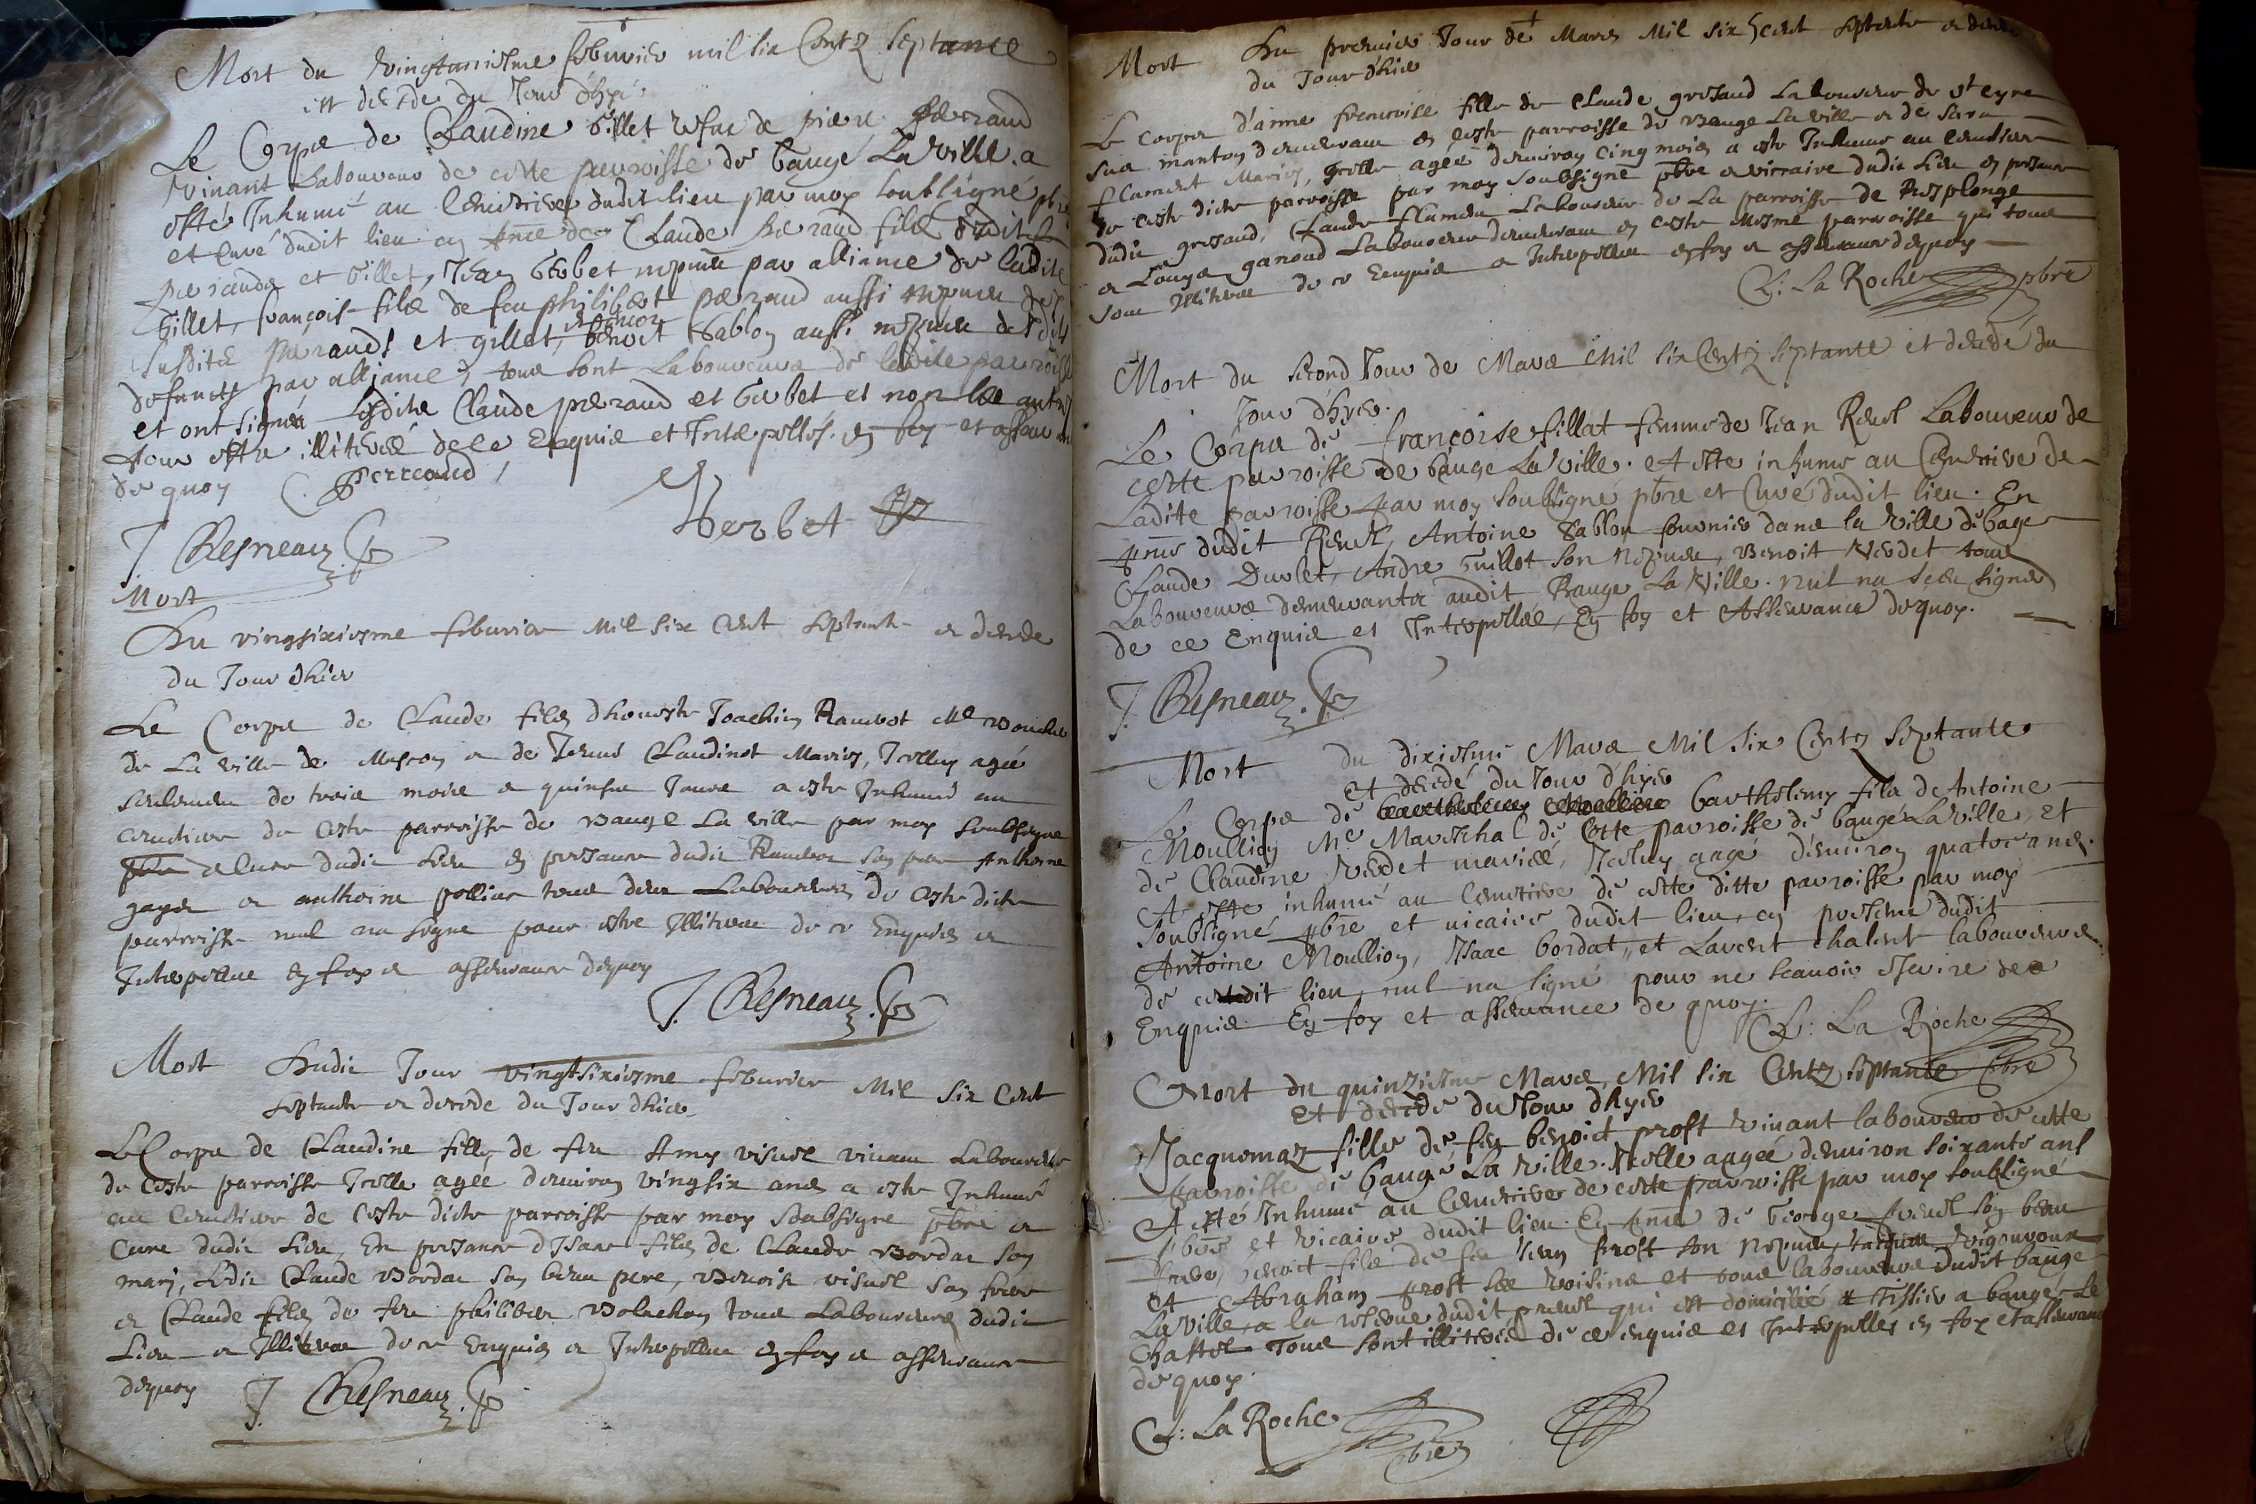 Mort du vingtuniesme febvrier mil six Centz septante
est decede du Jour d'hyé
Le Corps de Claudine Gillet vefue de pierre perraud
vivant Laboureur de cette parroisse de baugé La ville a
esté Inhumé au Cemetiere dudit lieu par moy soubsigné pbre
et Curé dudit lieu en pnce de Claude perraud filz dudit
perraud et Gillet, Jean Gerbet nepveu par alliance de ladite
Gillet, françois filz de feu philibert perraud aussi nepveu des
susdits perraud et gillet, benoit Sablon aussi nepveu desdits
defunctz par alliance, tous sont Laboureurs de ladite parroisse
et ont signé Lesdits Claude perraud et Gerbet et non les autres
pour estre illiterés de ce Enquis et Interpellés. en foy et asseurance
de quoy C. perreaud
Herbet
J. Chesneau
Mort
Du vingsixiesme febvrier Mil six Cent septante et decede
du Jour dhier
Le Corps de Claude filz dhoneste Joachin Rambot Me Boucher
de La ville de Mascon et de Claudinot Mariez, Icelluy agé
seulement de trois mois et quinse Jours a esté Inhumé au
cemetiere de ceste parroisse de Baugé La ville par moy soubsigné
pbre et Cure dudit Lieu en presance dudit Rambot son pere Anthoine
et anthoine pollias tous deux Laboureurs de ceste dicte
parroisse nul na signe pour estre Illiteres de ce Enquis et
Interpelles en foy et asseurance dequoy
J. Chesneau
Mort Dudit Jour vingtsixiesme febvrier Mil six Cent
septante et decede du Jour dhier
Le Corps de Claudine fille de feu Amy visuel vivant Laboureur
de ceste parroisse Icelle agée denviron vingsix ans a este Inhumé
au Cemetiere de ceste dicte parroisse par moy soubsigne pbre et
Cure dudit Lieu, En presance dIsaac filz de Claude Bordat son
mary, Ledit Claude Bordat son beau pere, Benoist visuel son frere
et Claude filz de feu philibert tous Laboureurs dudit
Lieu et Illiteres de ce Enquis et Interpelles en foy et asseurance
dequoy J. Chesneau
Mort Du premier Jour de Mars Mil six cent septante et decede
du Jour d'hier
Le corps d'anne francoise fille de Claude grosaud Laboureur de st cyre
sur manton demeurant en ceste parroisse de Bauge La ville et de
flament Mariez, Icelle agée denviron Cinq mois a este Inhume au Cemetiere
de ceste dicte parroisse par moy soubsigné pbre et vicaire dudit Lieu en presance
dudit grosaud, Claude flament Laboureur de La parroisse de Replonge
et Louys ganoud Laboureur demeurant en ceste mesme parroisse qui tous
sont Illiteres de ce Enquis et Interpelles en foy et asseurance dequoy
C: La Roche pbre
Mort du second Jour de Mars Mil six Centz septante et decedé du
Jour d'hyer.
Le Corps de françoise fillat femme de Jean Reul Laboureur de
cette parroisse de bauge La ville. A esté inhume au Cemetiere de
Ladite parroisse par moy soubsigné pbre et Curé dudit lieu. En
pnce dudit Reul, Antoine Sablon fournier dans la ville de bage
Claude Duvlet, Andre Guillot son Nepveu, Benoit Verdet tous
Laboureurs demeurants audit Bauge La Ville. nul na sceu signer
de ce Enquis et Interpellés, En foy et Asseurance dequoy.
J. Chesneau
Mort du dixiesme Mars Mil six Centz septante
et decedé du Jour d'hyer
Le Corps de barthelemy filz de Antoine
Moullion Me Mareschal de cette parroisse de baugé La ville, et
de Claudine Verdet mariés, Icelluy aagé d'environ quatre ans.
A esté inhumé au Cemetiere de cette ditte parroisse par moy
soubsigné pbre et vicaire dudit lieu, en presence dudit
Antoine Moullion, Isaac bordat, et Lavrent chalent laboureurs
de cedit lieu, nul na signé pour ne scauoir escrire de ce
Enquis En foy et asseurance de quoy.
C: La Roche
pbre
Mort du quinziesme Mars, Mil six Centz septante
Et decede du Jour d'hyer
Jacquemaz fille de feu benoict prost vivant laboureur de cette
parroisse de baugé La ville. Icelle aagée denviron soixante ans
A esté Inhumé au Cemetiere de cette parroisse par moy soubsigné
pbre et vicaire dudit lieu. En pnce de George preuel son beau
frere, benoict filz de feu Jean prost son nepveu, vigouroux
et Abraham prost ses voisins et tous laboureurs dudit bauge
La ville, a la reserve dudit preuel qui est domicilié tissier a baugé Le
Chastel. Tous sont illiterés de ce enquis et Interpelles en foy et asseurance
de quoy.
C: La Roche
pbre